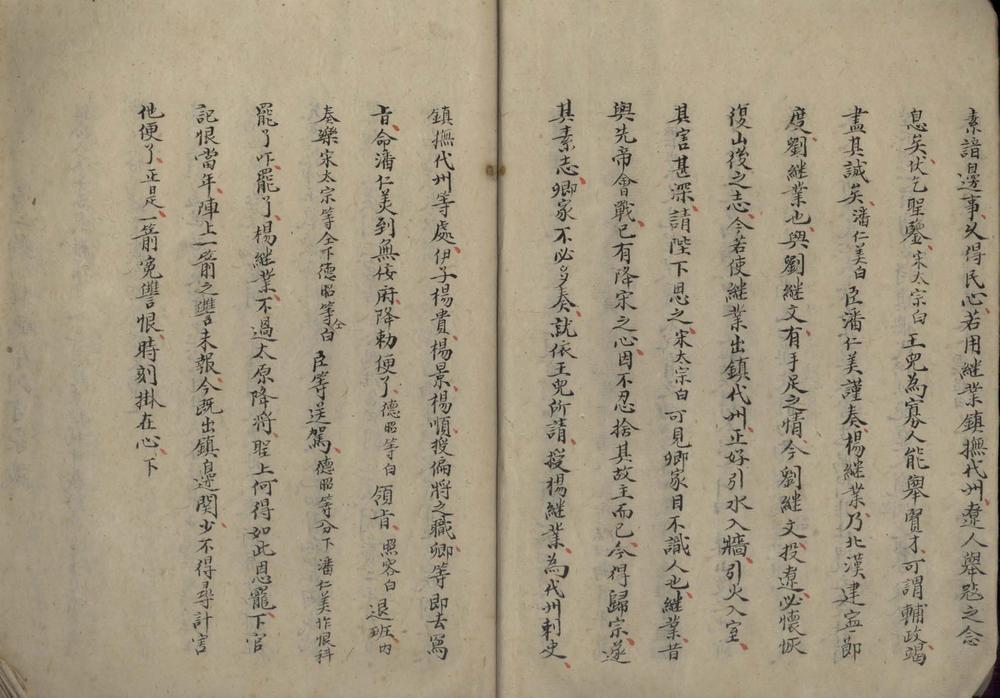 素諳邊事、久得民心、若用繼業鎮撫代州、遼人舉㞮之念
息矣、伏乞聖鑒、宋太宗白 王兒為寡人能舉賢才、可謂輔政竭
盡其誠矣、潘仁美白 臣潘仁美謹奏、楊継業乃北漢建寍節
度、劉継業也、與劉継文有手足之情、今劉継文投遼、必懷恢
復山後之志、今若使継業出鎮代州、正好引水入牆、引火入室、
其害甚深、請陛下思之、宋太宗白 可見卿家目不識人也、継業昔
與先帝會戰、已有降宋之心、因不忍捨其故主而已、今得歸宗、遂
其素志、卿家不必多奏、就依王兒所請、授楊継業為代州刺史、
鎮撫代州等處、伊子楊貴、楊景、楊順、授偏將之職、卿等即去寫
旨、命潘仁美到無佞府降勅便了、德昭等白 領旨、照容白 退班、內
奏樂宋太宗等仝下德昭等仝白 臣等送駕、德昭等分下潘仁美作恨科
罷了吓罷了、楊継業不過太原降將、聖上何得如此恩寵、下官
記恨當年、陣上一箭之讐未報、今既出鎮邊関、少不得尋計害
他便了、正是、一箭寃讐恨、時刻掛在心、下